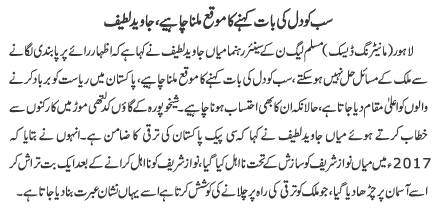 سب کو دل کی بات کہنے کا موقع ملنا چاہیے، جاوید لطیف
لاہور (مانیٹرنگ ڈیسک) مسلم لیگ ن کے سینئر رہنما میاں جاوید لطیف نے کہا ہے کہ اظہار رائے پر پابندی لگانے
سے ملک کے مسائل حل نہیں ہو سکتے، سب کو دل کی بات کہنے کا موقع ملنا چاہیے، پاکستان میں ریاست کو برباد کرنے
والوں کو اعلیٰ مقام دیا جاتا ہے، حالانکہ ان کا بھی احتساب ہونا چاہیے۔ شیخوپورہ کے گاؤں کدلتھی موڑ میں کارکنوں سے
خطاب کرتے ہوئے میاں جاوید لطیف نے کہا کہ سی پیک پاکستان کی ترقی کا ضامن ہے۔ انہوں نے بتایا کہ
2017ء میں میاں نواز شریف کو سازش کے تحت نااہل کیا گیا، نواز شریف کو نااہل کرانے کے بعد ایک بت تراش کر
اسے آسمان پر چڑھا دیا گیا، جو ملک کو ترقی کی راہ پر چلانے کی کوشش کرتا ہے اسے یہاں نشان عبرت بنا دیا جاتا ہے۔